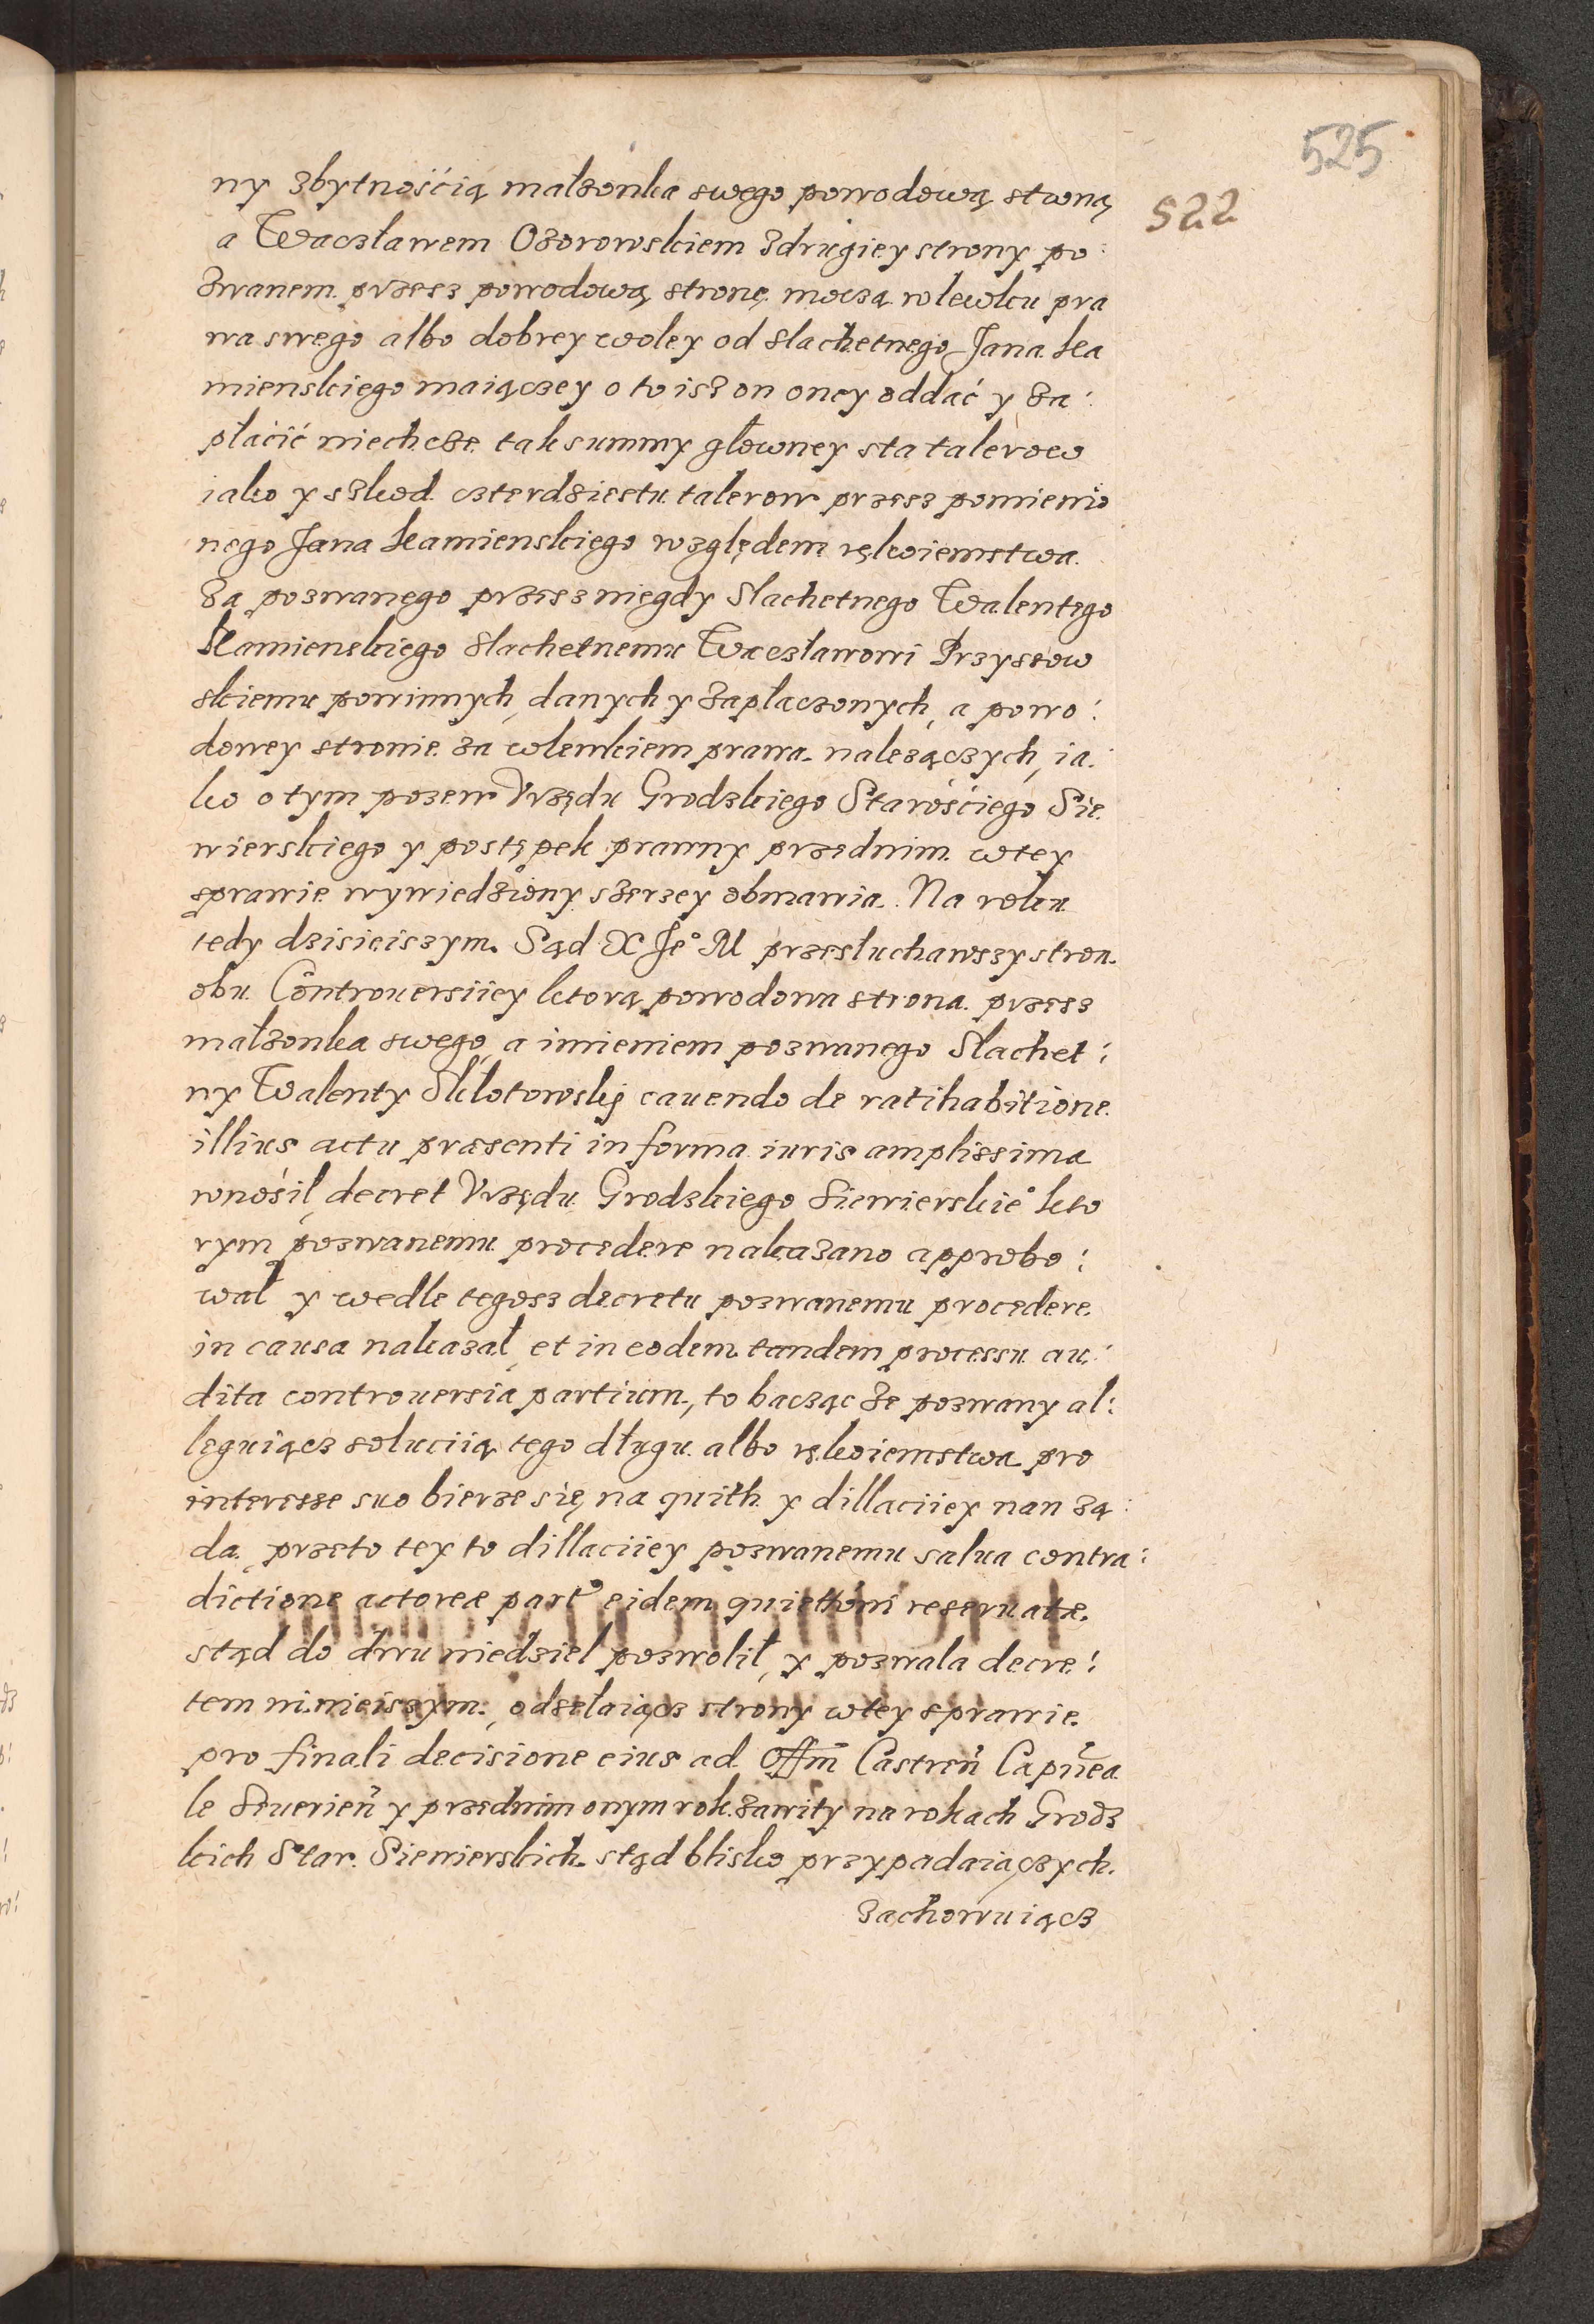 525
522
ny zbytnością małżonka swego powodową stroną
a Waczławem Ożorowskiem zdrugiey strony po:
zwanem przesz powodową stronę moczą wlewku pra
wa swego albo dobrey woley od slachetnego Jana Ka
mienskiego maiączey o to isz on oney oddać y za:
płacić niechcze tak summy główney sta talerow
iako y szkod czterdziestu talerow przesz pomienio
nego Jana Kamienskiego względem rękoiemstwa
za pozwanego przesz niegdy Slachetnego Walentego
Kamienskiego slachetnemu Waczławowi Przyszow
skiemu powinnych, danych y zapłaczonych, a powo:
dowey stronie za wlewkiem prawa należączych, ia:
ko o tym pozew Vrzędu Grodzkiego Starośćiego Sie
wierskiego y postępek prawny przednim wtey
sprawie wywiedziony szerzey obmawia. Na roku
tedy dzisieiszym. Sąd X Je° M przesłuchawszy stron
obu Controuersiiey ktorą powodowa strona przesz
małżonka swego, a imieniem pozwanego Slachet:
ny Walenty Skłotowskj cauendo de ratihabitione
illius actu præsenti in forma iuris amplissima
wnośił, decret Vrzędu Grodzkiego Siewierskie° kto
rym pozwanemu procedere nakazano approbo:
wał y wedle tegosz decretu pozwanemu procedere
in causa nakazał, et in eodem tandem processu au:
dita controuersia partium, to bacząc że pozwany al:
leguiącz soluciią tego długu albo rękoiemstwa pro
interesse suo bierze się na quith y dillaciiey nan żą:
da, przeto tey to dillaciiey pozwanemu salua contra:
dictione actoreæ part° eidem quiettoni reseruatæ
stąd do dwu niedziel pozwolił, y pozwala decre:
tem ninieiszym, odsełaiącz strony wtey sprawie
pro finali decisione eius ad Offm Castren Capnea
le Seuerien y przednim onym rok zawity na rokach Grodz
kich Star. Siewierskich stąd blisko przypadaiączych
zachowuiącz